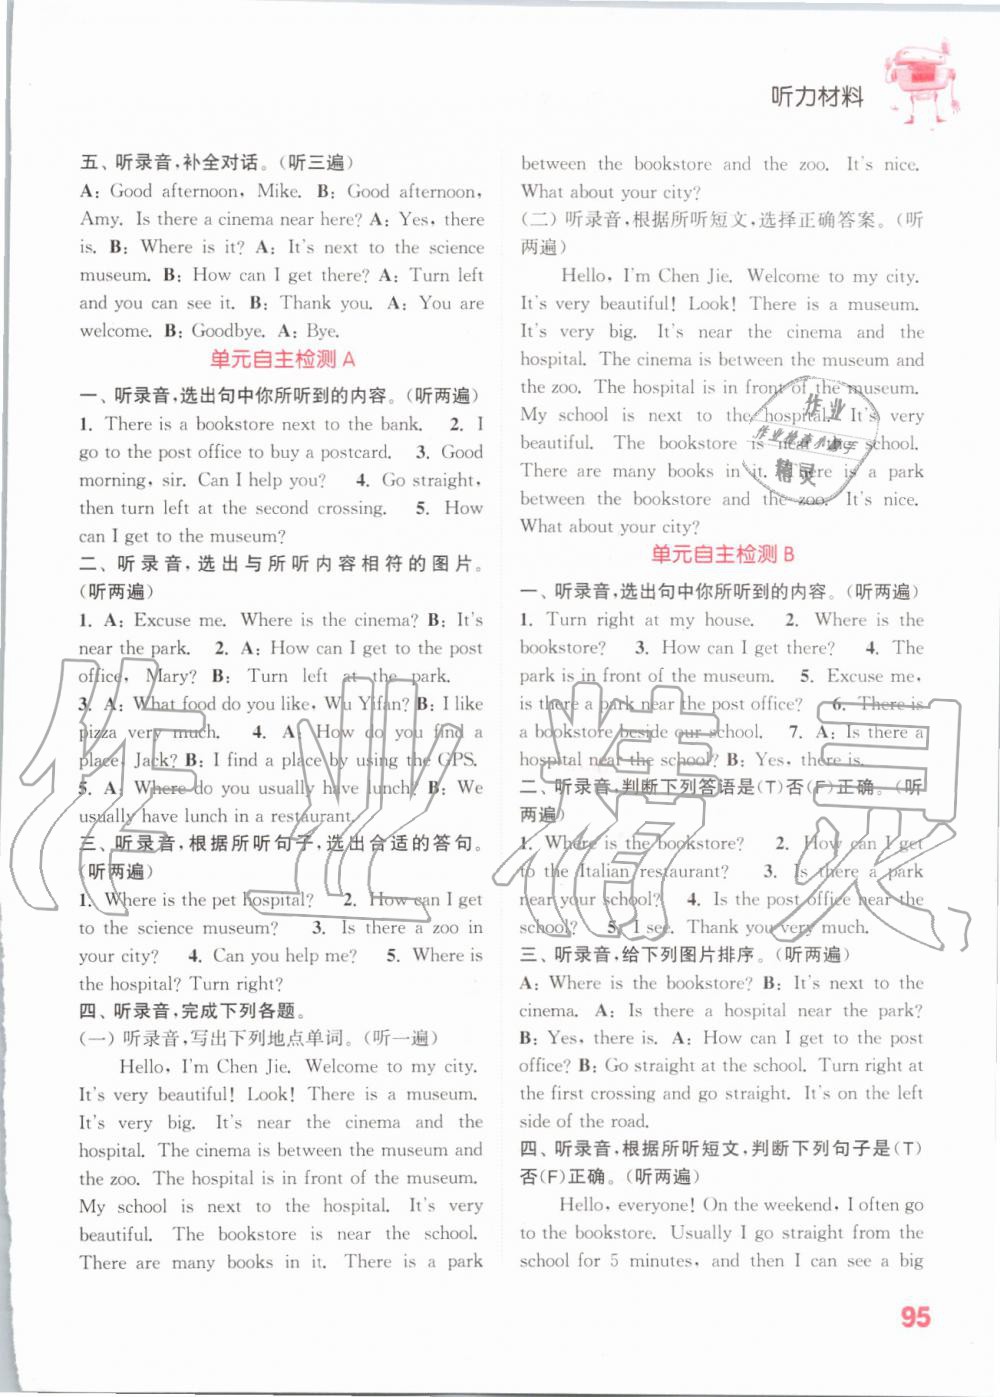 听力材料
五、听录音,补全对话。(听三遍)
A: Good afternoon, Mike. B: Good afternoon,
Amy. Is there a cinema near here? A: Yes, there
is. B: Where is it? A: It's next to the science
museum. B: How can I get there? A: Turn left
and you can see it. B: Thank you. A: You are
welcome. B: Goodbye. A: Bye.
单元自主检测 A
一、听录音,选出句中你所听到的内容。(听两遍)
1. There is a bookstore next to the bank. 2. I
go to the post office to buy a postcard. 3. Good
morning, sir. Can I help you? 4. Go straight,
then turn left at the second crossing. 5. How
can I get to the museum?
二、听录音,选出与所听内容相符的图片。
(听两遍)
1. A: Excuse me. Where is the cinema? B: It's
near the park. 2. A: How can I get to the post
office, Mary? B: Turn left at the park.
3. A: What food do you like, Wu Yifan? B: I like
pizza very much. 4. A: How do you find a
place, Jack? B: I find a place by using the GPS.
5. A: Where do you usually have lunch? B: We
usually have lunch in a restaurant.
三、听录音,根据所听句子,选出合适的答句。
(听两遍)
1. Where is the pet hospital? 2. How can I get
to the science museum? 3. Is there a zoo in
your city? 4. Can you help me? 5. Where is
the hospital? Turn right?
四、听录音,完成下列各题。
(一)听录音,写出下列地点单词。(听一遍)
Hello, I'm Chen Jie. Welcome to my city.
It's very beautiful! Look! There is a museum.
It's very big. It's near the cinema and the
hospital. The cinema is between the museum and
the zoo. The hospital is in front of the museum.
My school is next to the hospital. It's very
beautiful. The bookstore is near the school.
There are many books in it. There is a park
between the bookstore and the zoo. It's nice.
What about your city?
(二)听录音,根据所听短文,选择正确答案。(听
两遍)
Hello, I'm Chen Jie. Welcome to my city.
It's very beautiful! Look! There is a museum.
It's very big. It's near the cinema and the
hospital. The cinema is between the museum and
the zoo. The hospital is in front of the museum.
My school is next to the hospital. It's very
beautiful. The bookstore is near the school.
There are many books in it. There is a park
between the bookstore and the zoo. It's nice.
What about your city?
单元自主检测 B
一、听录音,选出句中你所听到的内容。(听两遍)
1. Turn right at my house. 2. Where is the
bookstore? 3. How can I get there? 4. The
park is in front of the museum. 5. Excuse me,
is there a park near the post office? 6. There is
a bookstore beside our school. 7. A: Is there a
hospital near the school? B: Yes, there is.
二、听录音,判断下列答语是(T)否(F)正确。(听
两遍)
1. Where is the bookstore? 2. How can I get
to the Italian restaurant? 3. Is there a park
near your school? 4. Is the post office near the
school? 5. I see. Thank you very much.
三、听录音,给下列图片排序。(听两遍)
A: Where is the bookstore? B: It's next to the
cinema. A: Is there a hospital near the park?
B: Yes, there is. A: How can I get to the post
office? B: Go straight at the school. Turn right at
the first crossing and go straight. It's on the left
side of the road.
四、听录音,根据所听短文,判断下列句子是(T)
否(F)正确。(听两遍)
Hello, everyone! On the weekend, I often go
to the bookstore. Usually I go straight from the
school for 5 minutes, and then I can see a big
95
作业
作业检查小帮手
精灵
作业精灵